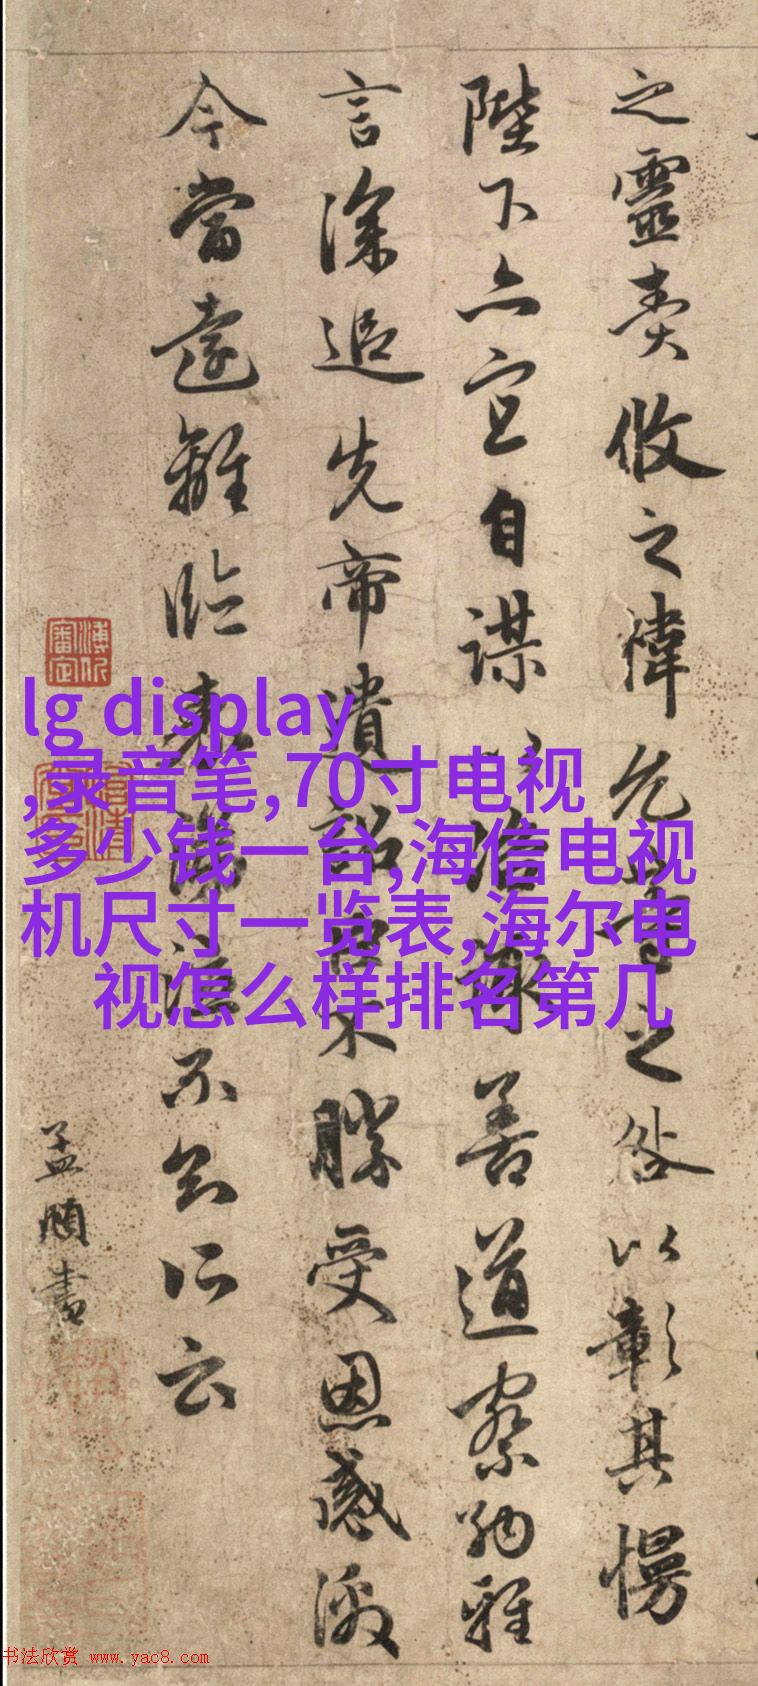 之靈責攸之禕允等之咎以彰其慢
陛下亦宜自謀以諮諏善道察納雅
言深追先帝遺詔臣不勝受恩感激
今當遠離臨表涕泣不知所云
孟頫書
lg display
,录音笔,70寸电视
多少钱一台,海信电视
机尺寸一览表,海尔电
视怎么样排名第几
书法欣赏 www.yac8.com